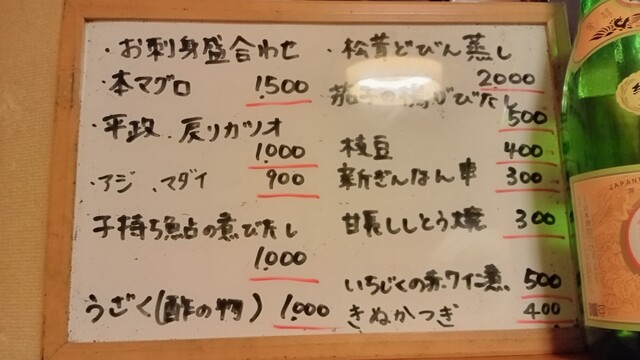 ・お刺身盛合わせ
・本マグロ 1,500
・平政、戻りガツオ
1,000
・アジ、マダイ 900
子持ち鮎の煮びたし
1,000
うざく(酢の物) 1,000
・松茸どびん蒸し
2000
茄子の揚げびたし
500
枝豆 400
新ぎんなん串 300
甘長ししとう焼 300
いちじくの赤ワイン煮 500
きぬかつぎ 400
JAPAN